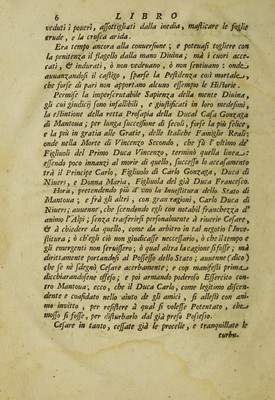 6 LIBRO
veduti i poveri, assottigliati dalla inedia, masticare le foglie
crude, e la crusca arida.
Era tempo ancora alla conuersione; e poteuasi togliere con
la penitenza il flagello dalla mano Diuina; mà i cuori acce-
cati, & indurati, ò non vedeuano, ò non sentiuano: onde
auuanzandosi il castigo, sparse la Pestilenza così mortale,
che forse di pari non apportano alcuno essempio le Historie.
Permise la imperscrutabile Sapienza della mente Diuina,
gli cui giudicij sono infallibili, e giustificati in loro medesimi,
la estintione della retta Prosapia della Ducal Casa Gonzaga
di Mantoua; per lunga successione di secoli, fusse la più felice,
e la più in gratia alle Gratie, delle Italiche Famiglie Reali:
onde nella Morte di Vincenzo Secondo, che fù l'vltimo de'
Figliuoli del Primo Duca Vincenzo, terminò quella linea:
essendo poco innanzi al morir di quello, successo lo accasamento
trà il Principe Carlo, Figliuolo di Carlo Gonzaga, Duca di
Niuers, e Donna Maria, Figliuola del già Duca Francesco.
Hora; pretendendo più d'vno la Inuestitura dello Stato di
Mantoua; e frà gli altri, con gran ragioni, Carlo Duca di
Niuers; auuenne, che scendendo egli con notabil franchezza d'
animo l'Alpi; senza trasferirsi personalmente à riuerir Cesare,
& à chiedere da quello, come da arbitro in tal negotio l'Inue-
stitura; ò ch'egli ciò non giudicasse neccessario, ò che il tempo e
gli emergenti non seruissero; ò qual altra la cagione si fosse; mà
dirittamente portandosi al Possesso dello Stato; auuenne (dico)
che se nè sdegnò Cesare acerbamente; e con manifesti prima
dicchiarandosene offeso; e poi armando poderoso Essercito con-
tro Mantoua: ecco, che il Duca Carlo, come legitimo discen-
dente e confidato nello aiuto de gli amici, si allestì con ani-
mo inuitto, per resistere à qual si volesse Potentato, che
mosso si fosse, per disturbarlo dal già preso Possesso.
Cesare in tanto, cessate già le procelle, e tranquillate le
turbu-